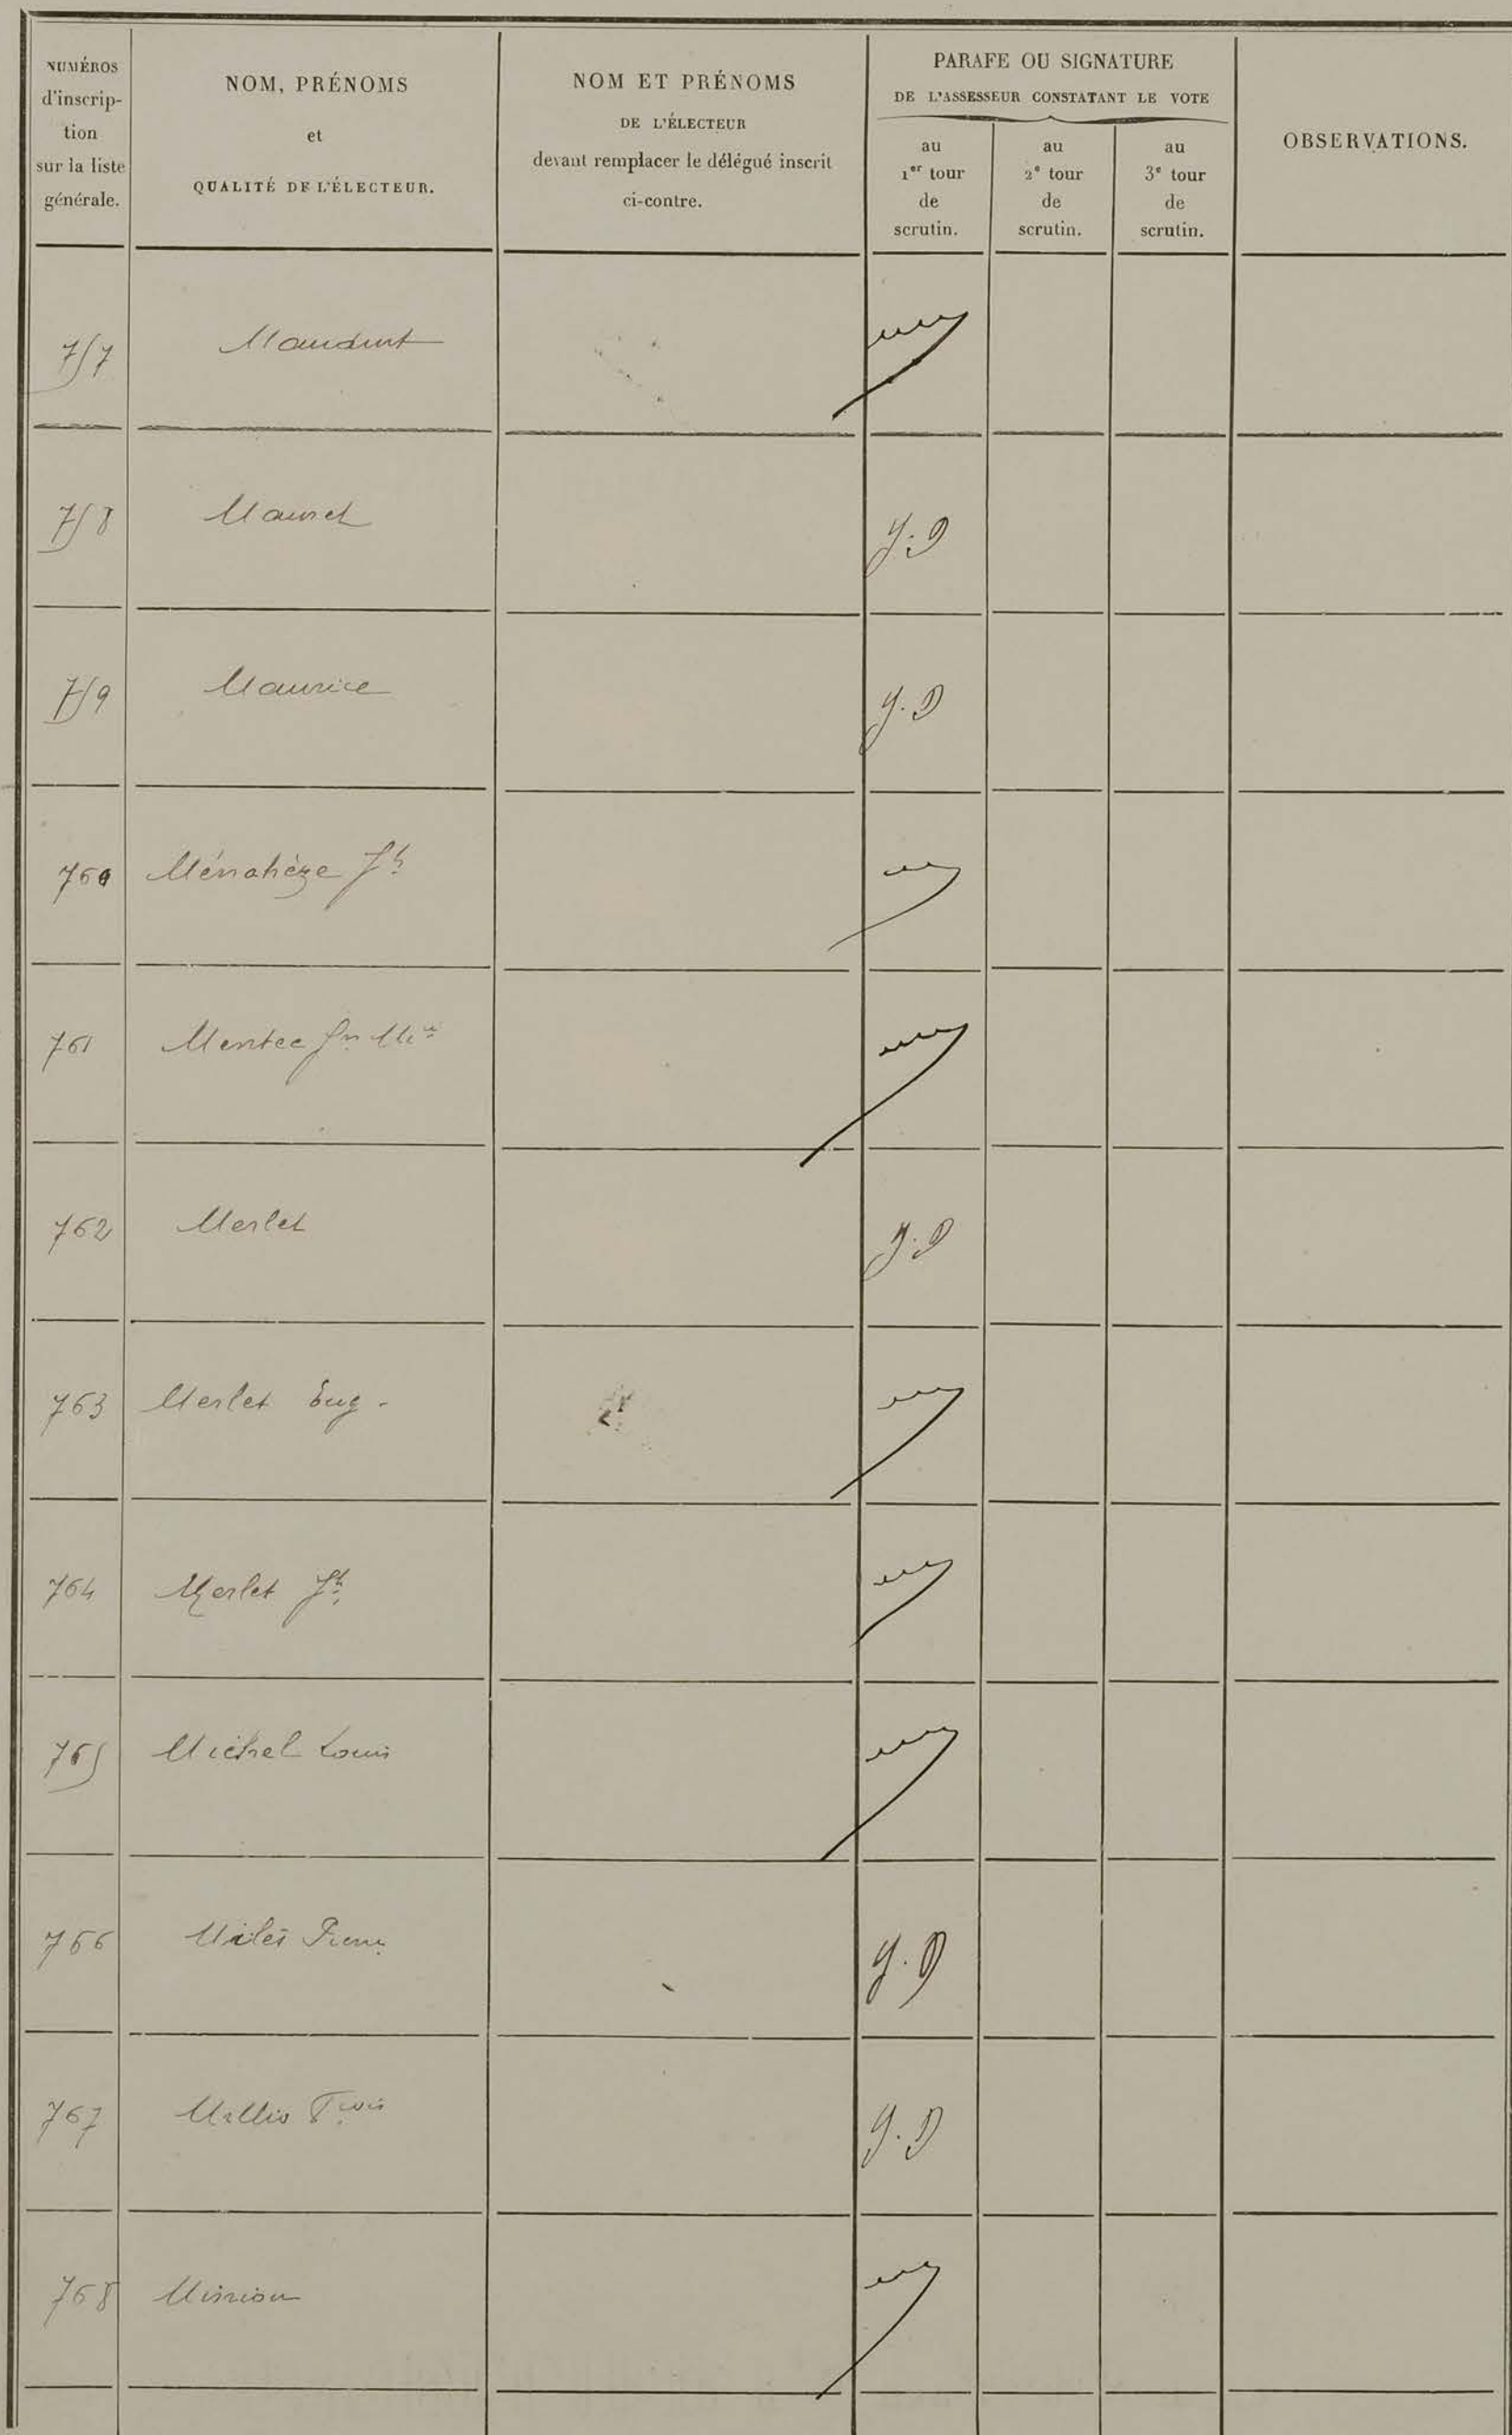 NUMÉROS
d'inscrip-
tion
sur la liste
générale.
NOM, PRÉNOMS
et
QUALITÉ DE L'ÉLECTEUR.
NOM ET PRÉNOMS
DE L'ÉLECTEUR
devant remplacer le délégué inscrit
ci-contre.
PARAFE OU SIGNATURE
DE L'ASSESSEUR CONSTATANT LE VOTE
au
1er tour
de
scrutin.
au
2e tour
de
scrutin.
au
3e tour
de
scrutin.
OBSERVATIONS.
757
758 Mauret J. D
759 Maurice J. D
760 Ménahèze Jh
761 Mentec Jn Mie
762 Merlet J. D
763 Merlet Eug.
764 Merlet Jh
765 Michel Louis
766 Pierre J. D
767 Fcois J. D
768